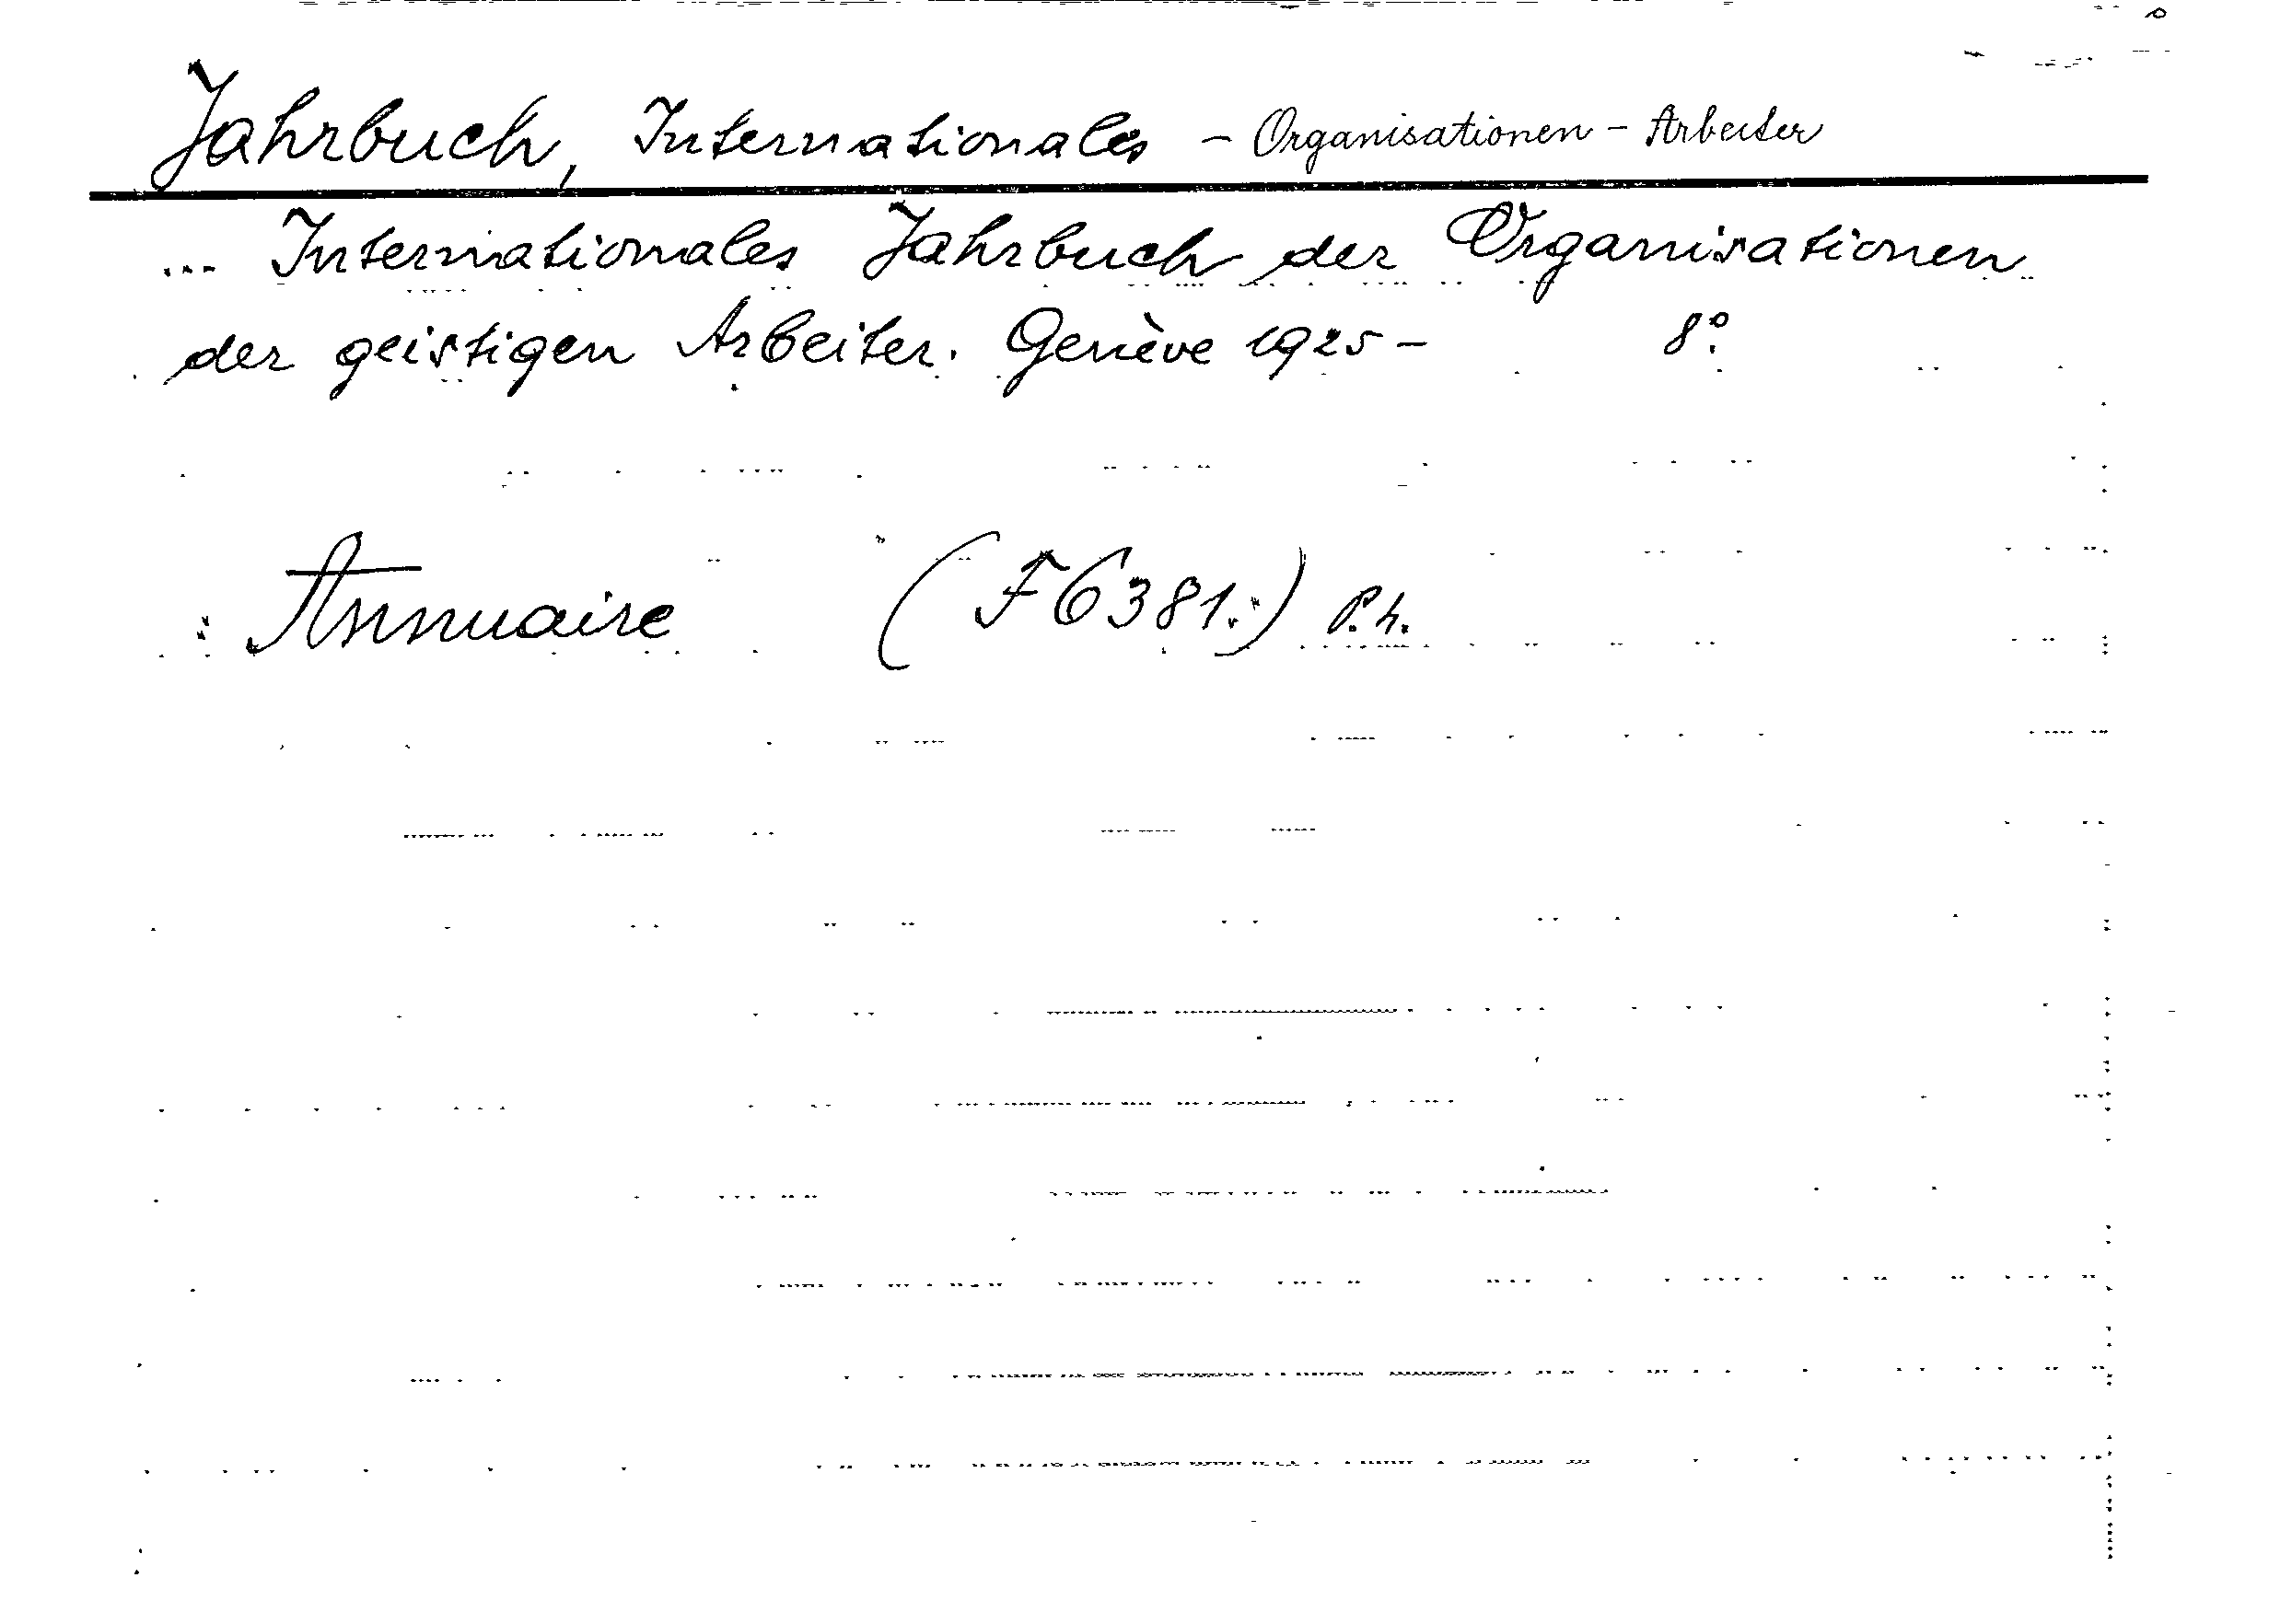 Jahrbuch, Internationales - Organisationen - Arbeiter
... Internationales Jahrbuch der Organisationen
der geistigen Arbeiter. Genève 1925 - 8°.
: Annuaire (F6381.:) P.h.